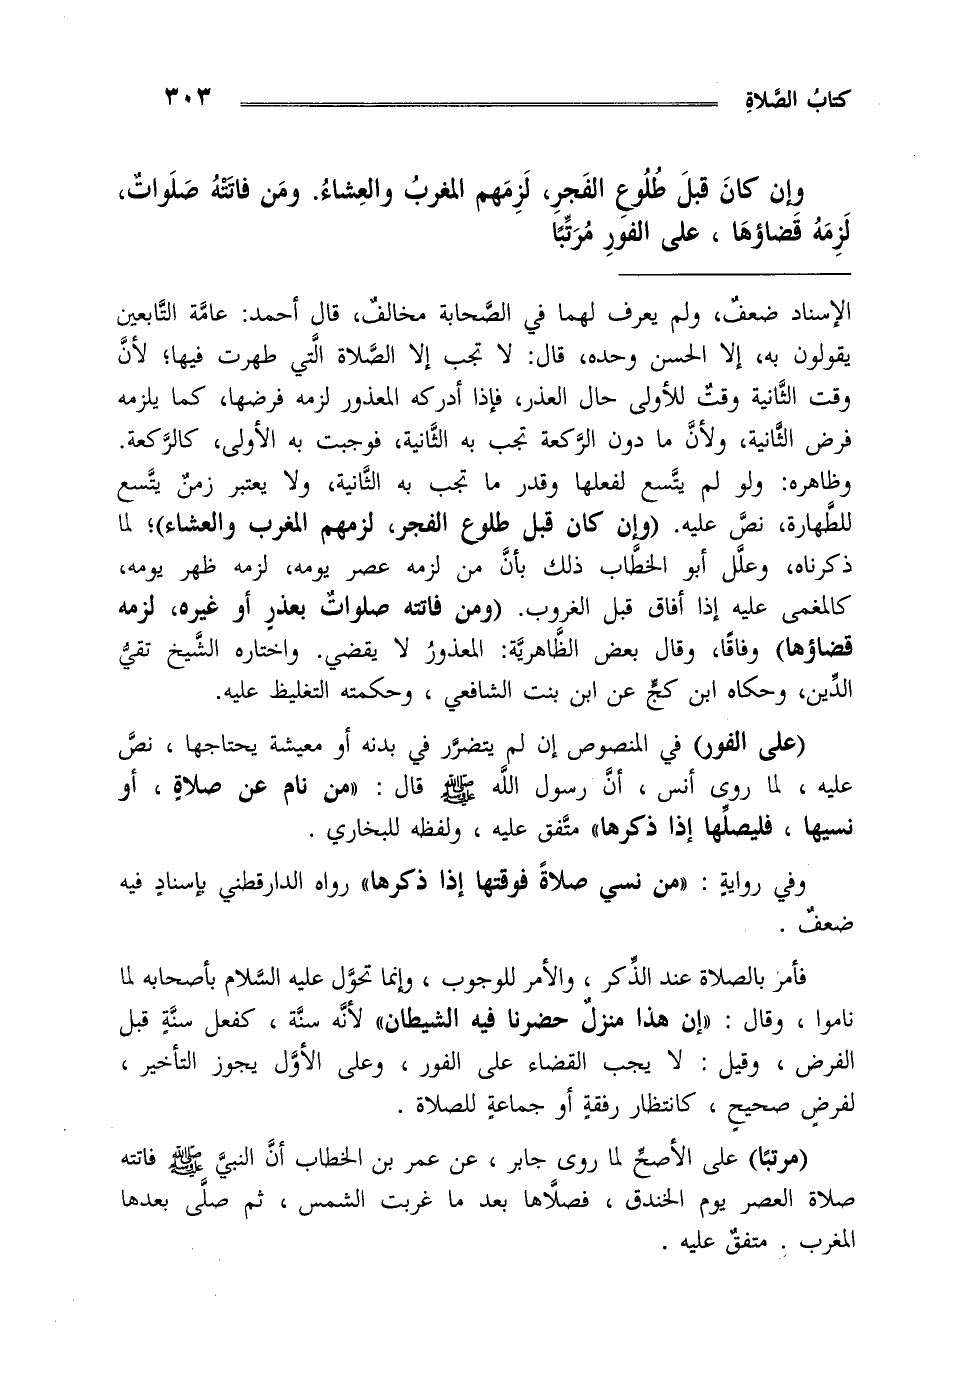 كتابُ الصَّلاةِ ٣٠٣
وإن كانَ قبلَ طُلُوعِ الفَجرِ، لَزِمَهم المغربُ والعِشاءُ. ومَن فاتَتْهُ صَلَواتٌ،
لَزِمَهُ قَضاؤهَا ، على الفَورِ مُرَتِّبًا
الإسناد ضعفٌ، ولم يعرف لهما في الصَّحابة مخالفٌ، قال أحمد: عامَّة التَّابعين
يقولون به، إلا الحسن وحده، قال: لا تجب إلا الصَّلاة الَّتي طهرت فيها؛ لأنَّ
وقت الثَّانية وقتٌ للأولى حال العذر، فإذا أدركه المعذور لزمه فرضها، كما يلزمه
فرض الثَّانية، ولأنَّ ما دون الرَّكعة تجب به الثَّانية، فوجبت به الأولى، كالرَّكعة.
وظاهره: ولو لم يتَّسع لفعلها وقدر ما تجب به الثَّانية، ولا يعتبر زمنٌ يتَّسع
للطَّهارة، نصَّ عليه. (وإن كان قبل طلوع الفجر، لزمهم المغرب والعشاء)؛ لما
ذكرناه، وعلَّل أبو الخطَّاب ذلك بأنَّ من لزمه عصر يومه، لزمه ظهر يومه،
كالمغمى عليه إذا أفاق قبل الغروب. (ومن فاتته صلواتٌ بعذرٍ أو غيره، لزمه
قضاؤها) وفاقًا، وقال بعض الظَّاهريَّة: المعذورُ لا يقضي. واختاره الشَّيخ تقيُّ
الدِّين، وحكاه ابن كجٍّ عن ابن بنت الشافعي ، وحكمته التغليظ عليه.
(على الفور) في المنصوص إن لم يتضرَّر في بدنه أو معيشة يحتاجها ، نصَّ
عليه ، لما روى أنس ، أنَّ رسول اللَّه ﷺ قال : «من نام عن صلاةٍ ، أو
نسيها ، فليصلِّها إذا ذكرها» متَّفق عليه ، ولفظه للبخاري .
وفي روايةٍ : «من نسي صلاةً فوقتها إذا ذكرها» رواه الدارقطني بإسنادٍ فيه
ضعفٌ .
فأمرَ بالصلاة عند الذِّكر ، والأمر للوجوب ، وإنما تحوَّل عليه السَّلام بأصحابه لما
ناموا ، وقال : «إن هذا منزلٌ حضرنا فيه الشيطان» لأنَّه سنَّة ، كفعل سنَّةٍ قبل
الفرض ، وقيل : لا يجب القضاء على الفور ، وعلى الأوَّل يجوز التأخير ،
لفرضٍ صحيحٍ ، كانتظار رفقةٍ أو جماعةٍ للصلاة .
(مرتبًا) على الأصحِّ لما روى جابر ، عن عمر بن الخطاب أنَّ النبيَّ ﷺ فاتته
صلاة العصر يوم الخندق ، فصلَّاها بعد ما غربت الشمس ، ثم صلَّى بعدها
المغرب . متفقٌ عليه .